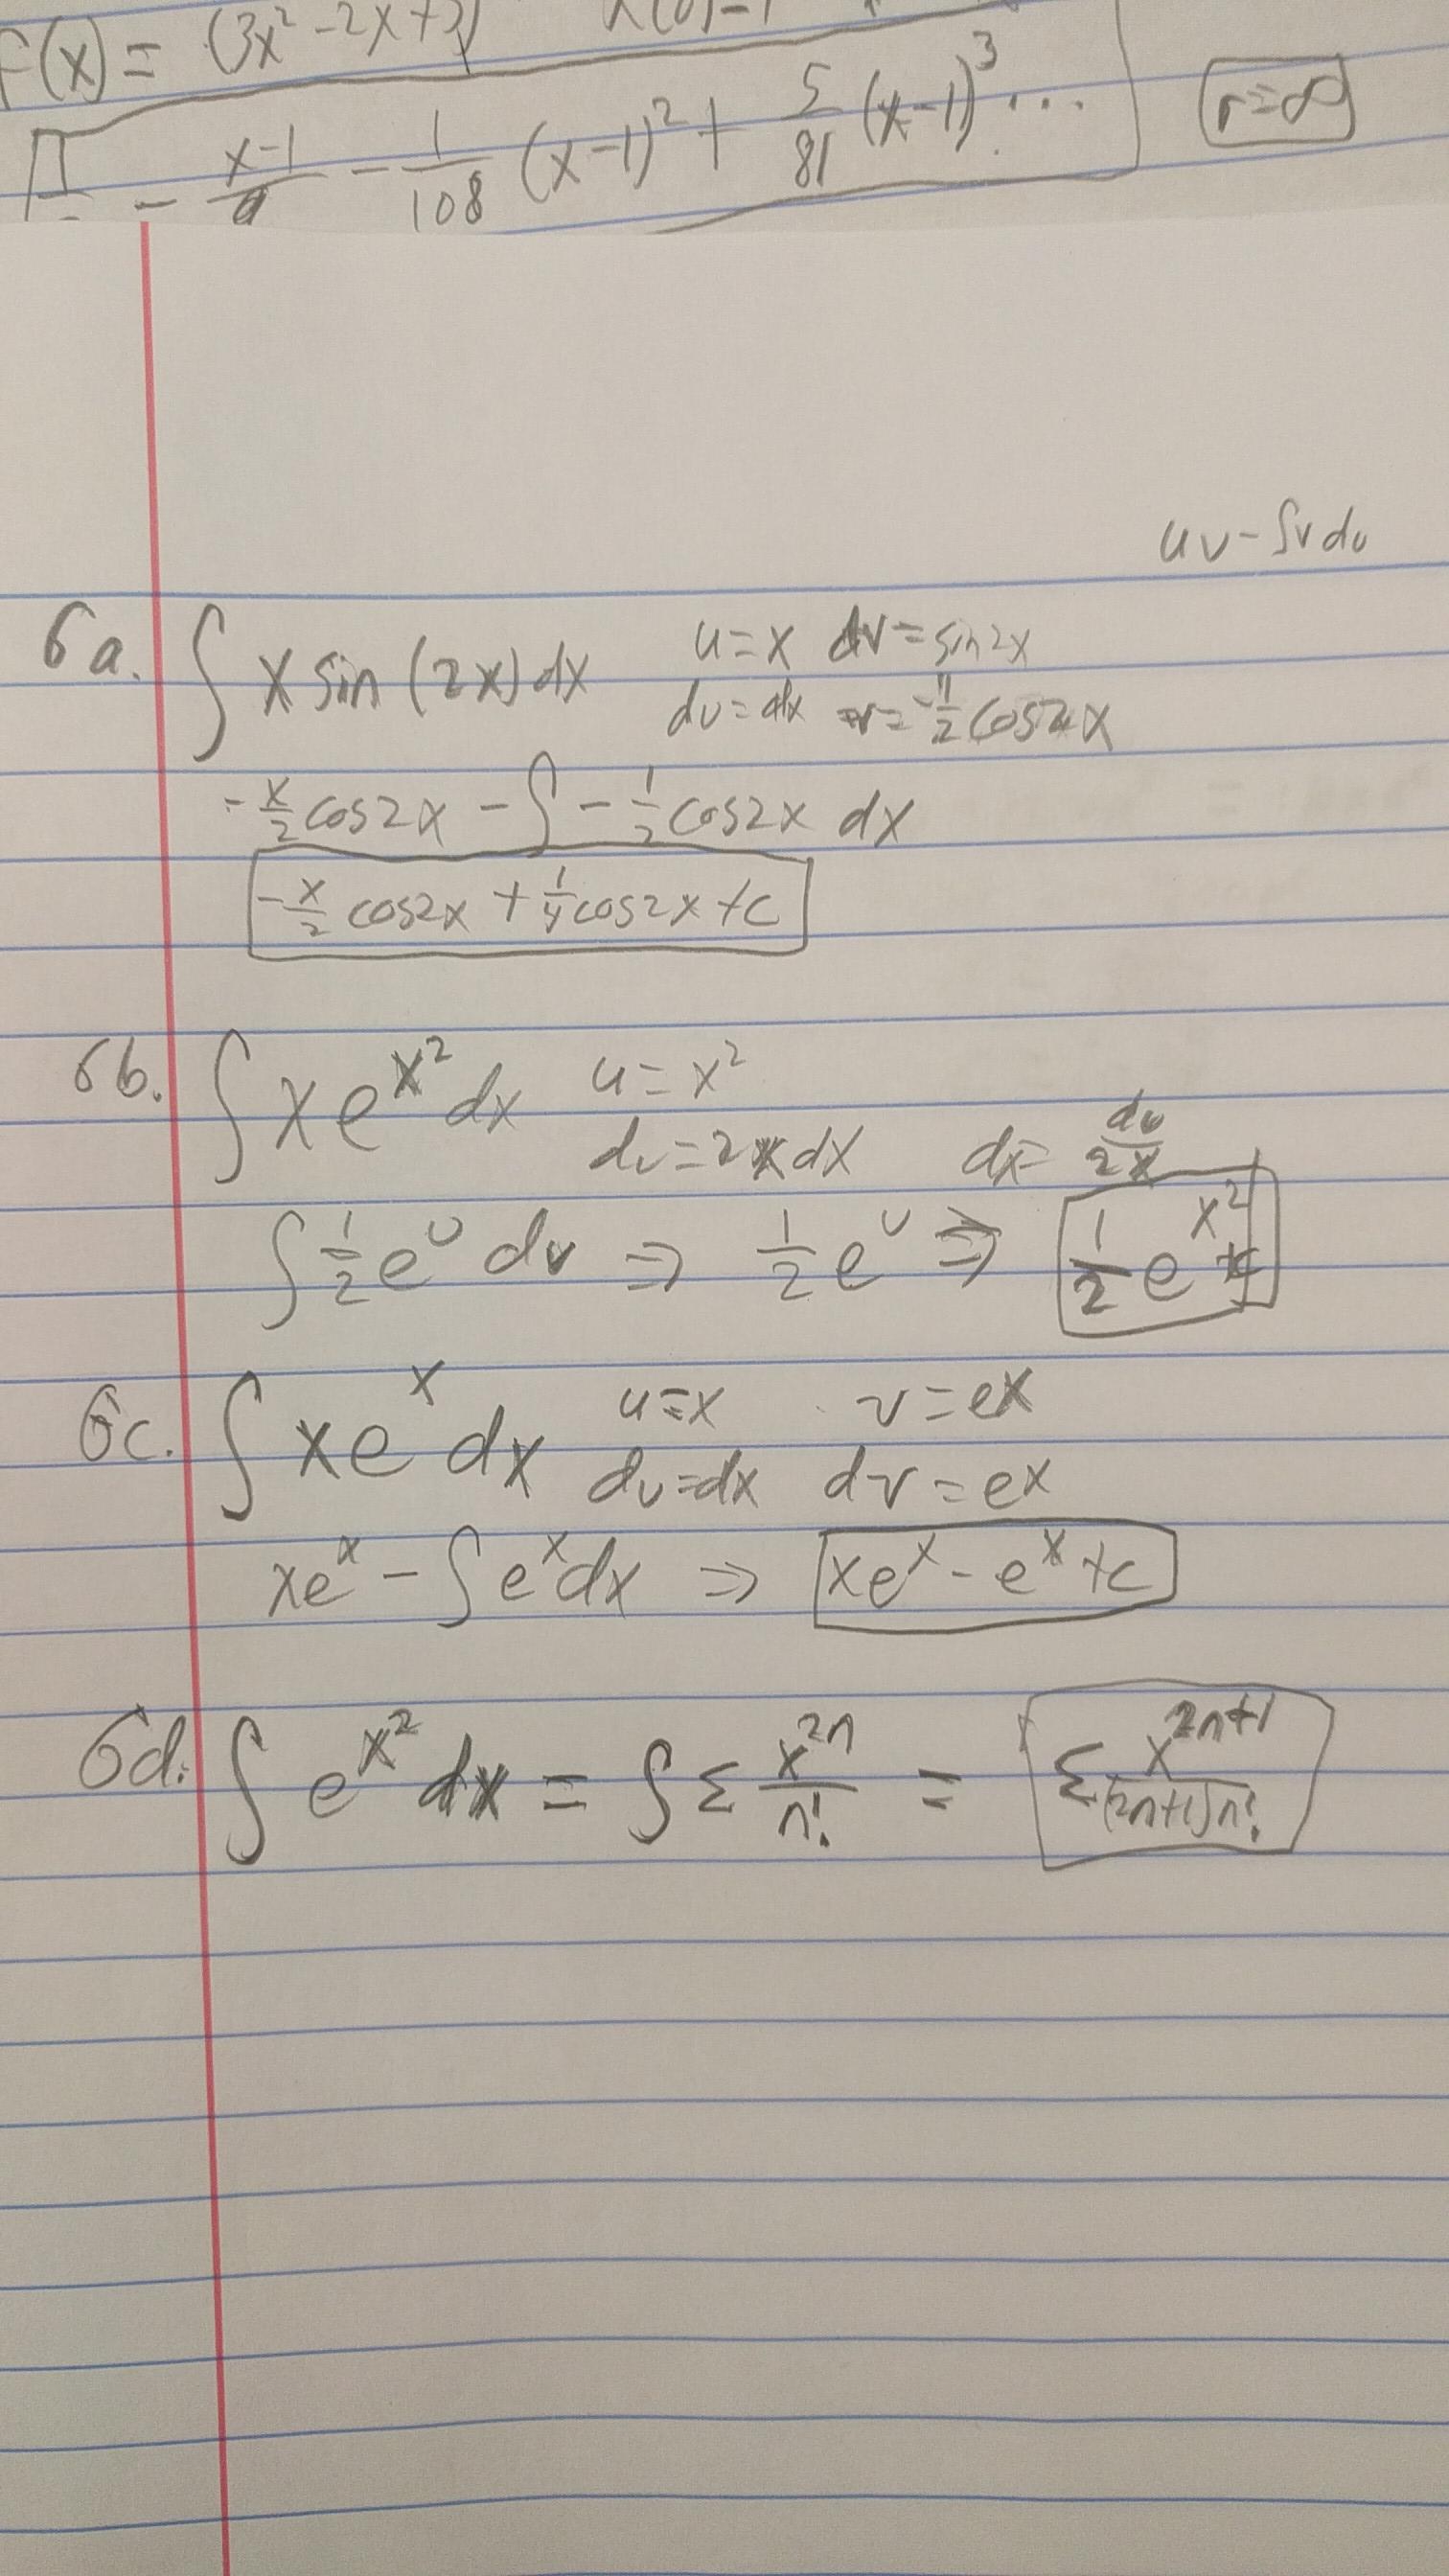 F(x) = (3x² - 2x + 3)
- x-1/9 - 1/108 (x-1)² + 5/81 (x-1)³ ... r=∞
uv - ∫v du
6a. ∫ x sin (2x) dx u = x dv = sin 2x
du = dx v = -1/2 cos2x
- x/2 cos2x - ∫ - 1/2 cos2x dx
- x/2 cos2x + 1/4 cos2x + c
6b. ∫ x e^x² dx u = x²
du = 2x dx dx = du/2x
∫ 1/2 e^u du ⇒ 1/2 e^u ⇒ 1/2 e^x² + c
6c. ∫ x e^x dx u = x v = e^x
du = dx dv = e^x
xe^x - ∫ e^x dx ⇒ xe^x - e^x + c
6d. ∫ e^x² dx = ∫ Σ x^2n/n! = Σ x^2n+1/(2n+1)n!